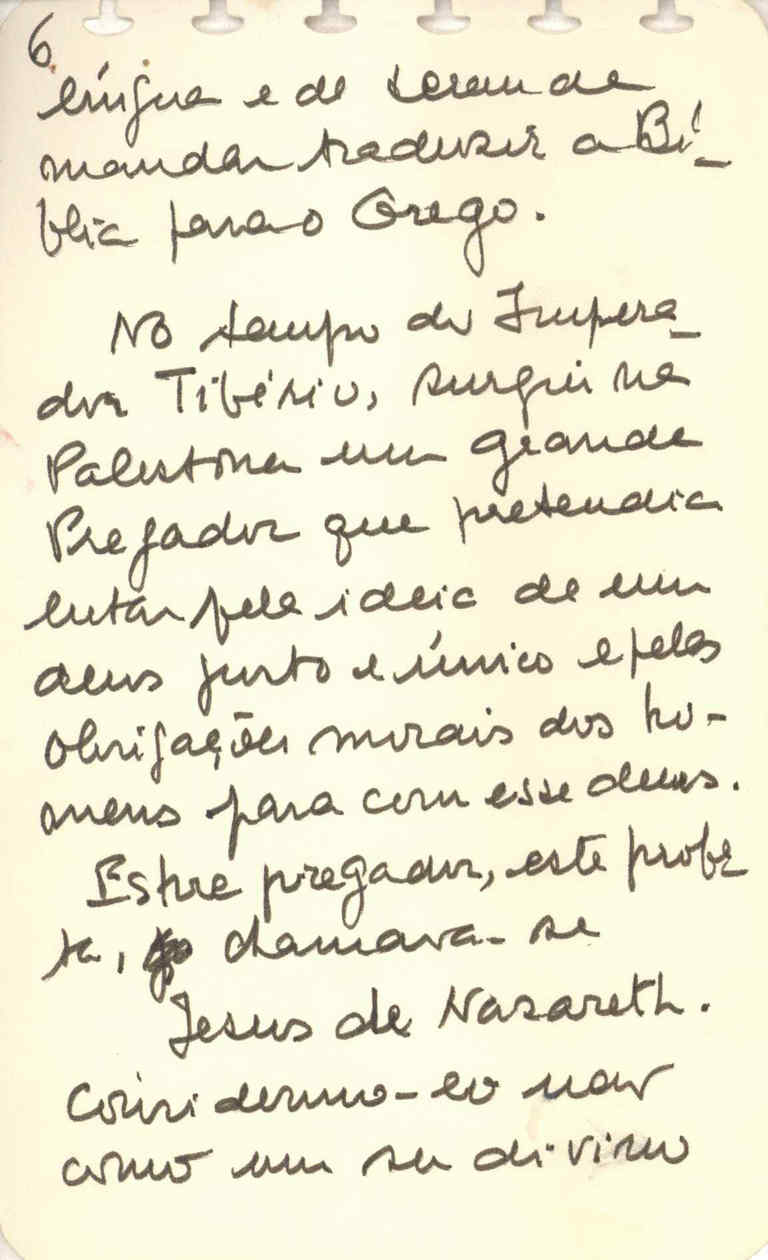 6
língua e de terem de
mandar traduzir a Bí-
blia para o Grego.
No tempo do Impera-
dor Tibério, surgiu na
Palestina um grande
Pregador que pretendia
lutar pela ideia de um
deus justo e único e pelas
obrigações morais dos ho-
mens para com esse deus.
Este pregador, este profe
ta, chamava-se
Jesus de Nazareth.
Considermo-lo não
como um ser divino